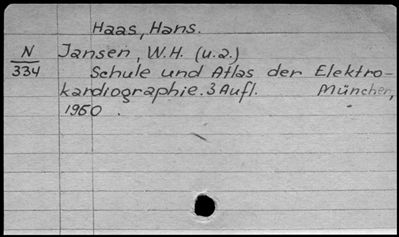 Haas, Hans.
N Jansen, W.H. (u.a.)
334 Schule und Atlas der Elektro-
kardiographie. 3 Aufl. München,
1960.